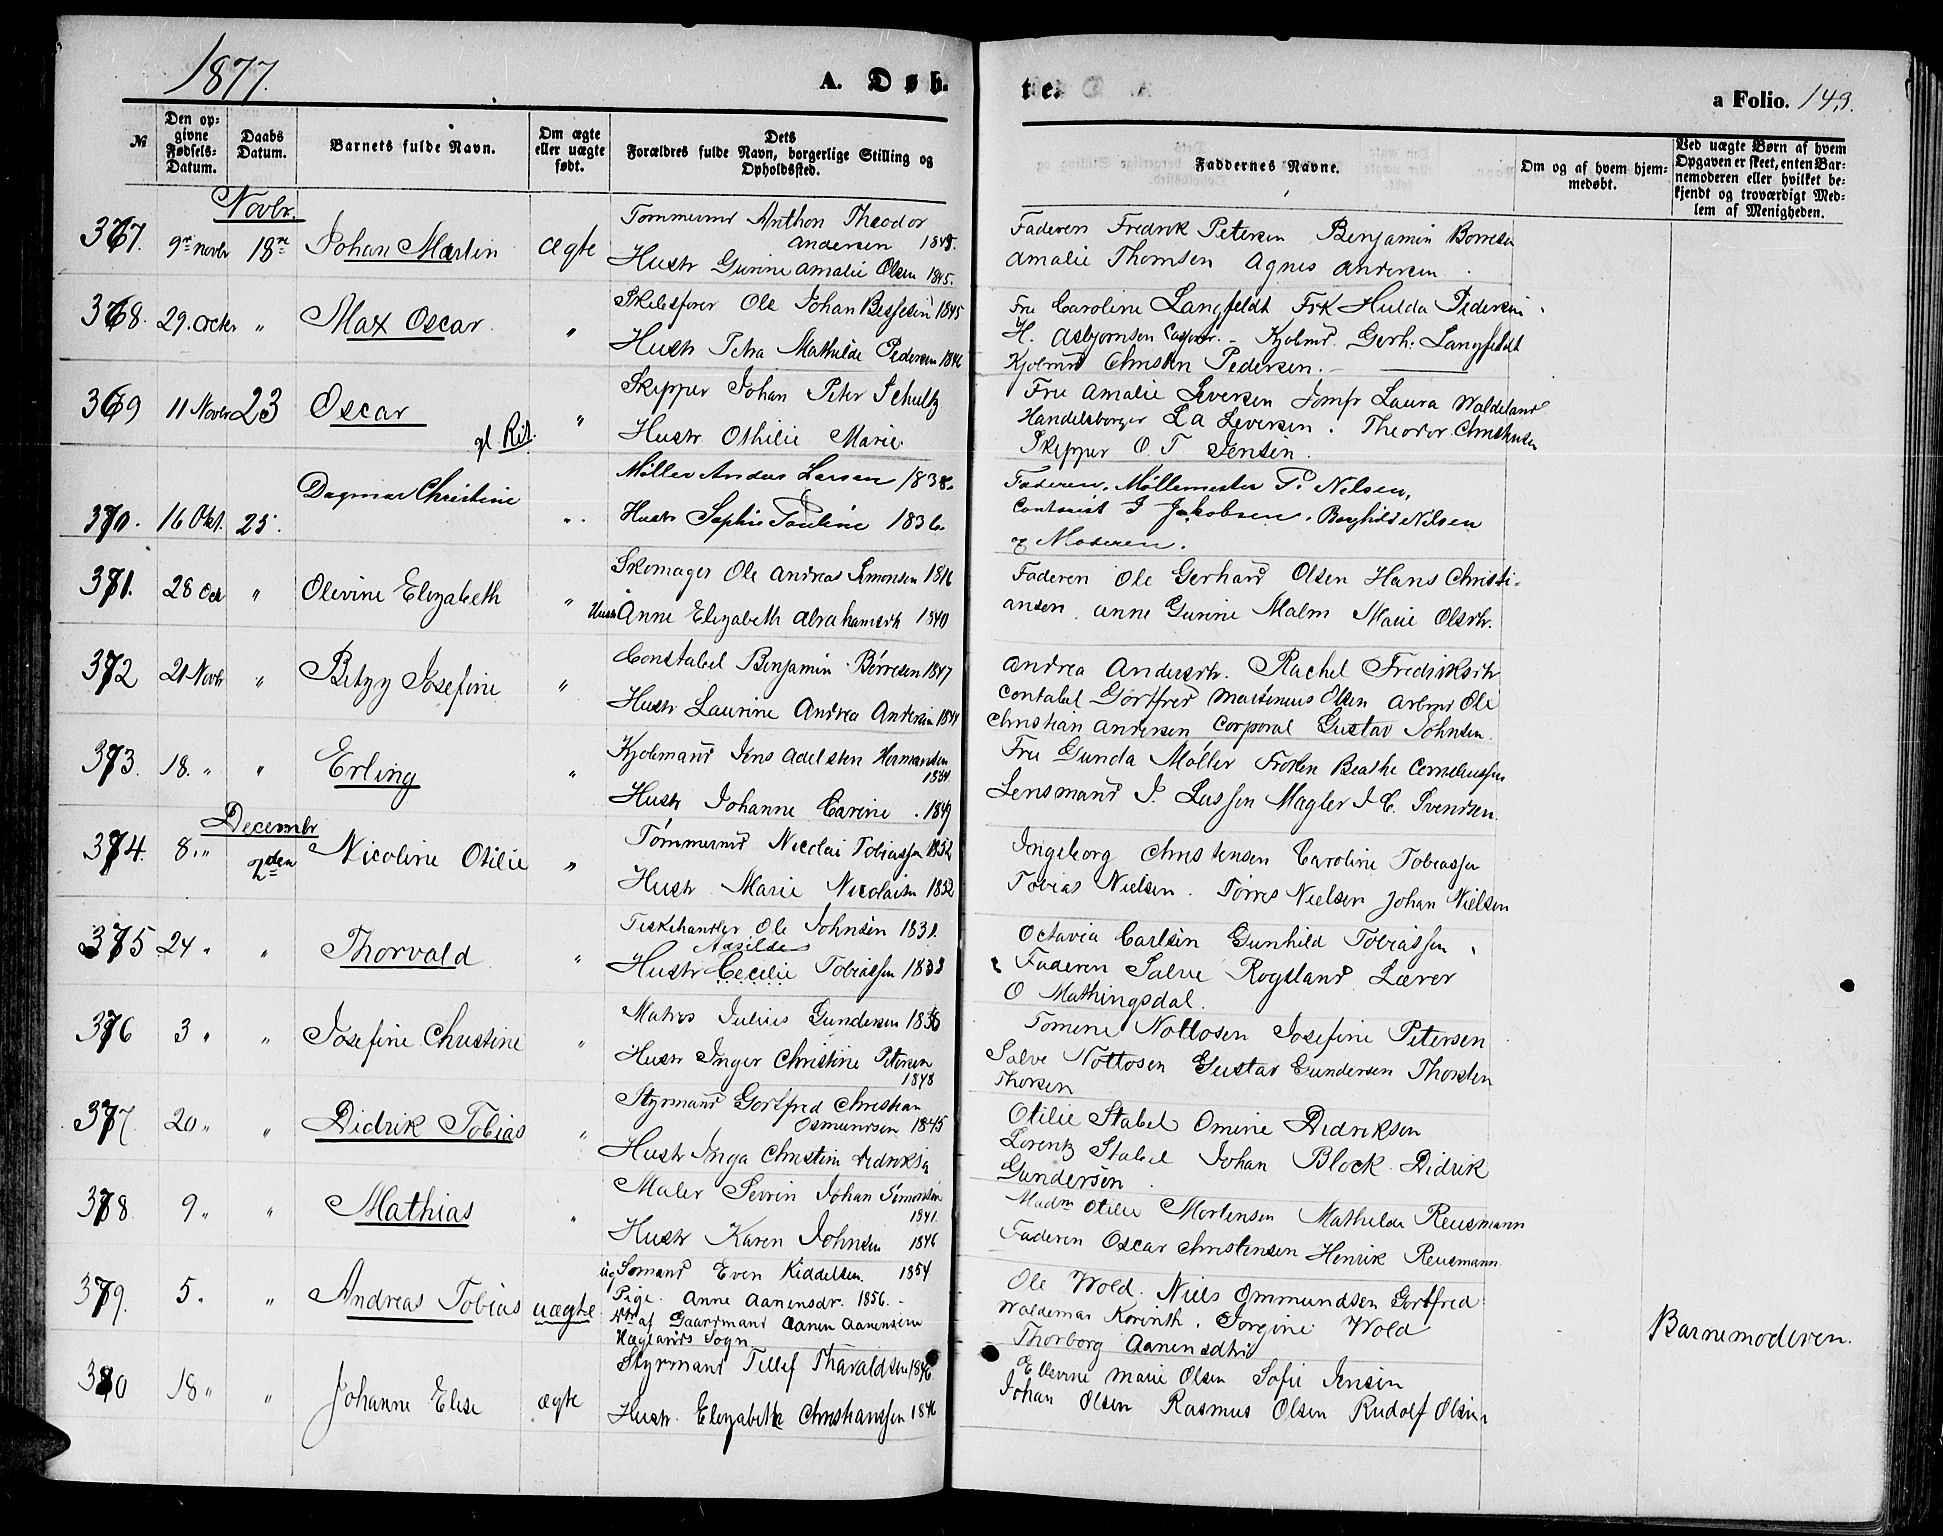 1877. A. Døb- te. a Folio. 149.
№ Den opgivne Fødsels-Datum. Daabs Datum. Barnets fulde Navn. Om ægte eller uægte født. Dets Forældres fulde Navn, borgerlige Stilling og Opholdssted. Faddernes Navne. Om og af hvem hjemmedøbt. Ved uægte Børn af hvem Opgaven er skeet, enten Barnemoderen eller hvilket bekjendt og troværdigt Medlem af Menigheden.
Novbr.
367. 9de Novbr 18de Johan Martin Ægte Tømmermd Anthon Theodor Andersen 1845.
Hustr Gurine Amalie Olsen 1845.
Faderen Fredrik Petersen Benjamin Borresen
Amalie Thomsen Agnes Andersen
368. 29. Octbr " Max Oscar " Skibsfører Ole Johan Bessesen 1845
Hustr Petra Mathilde Pedersen 1846
Fru Caroline Langfeldt Frk Hulda Pedersen
H. Asbjørnsen - Kjøbmd Gerh. Langfeldt
Kjøbmd Christen Pedersen.
369 11 Novbr 23 Oscar " Skipper Johan Peter Schultz
Hustr Othilie Marie
Fru Amalie Seversen Jomfr Laura Waldeland
Handelsborger L A Seversen. Theodor Christensen
Skipper O. T Jensen.
370. 16 Okt. 25. Dagmar Christine " Møller Anders Larsen 1838.
Hustr Sophie Pauline 1836.
Faderen. Møllemester P. Nilsen,
Contorist J Jakobsen. Borghild Nilsen
og Moderen.
371. 28 Oct " Olevine Elezabeth " Skomager Ole Andreas Simonsen 1816
Hustr Anne Elezabeth Abrahamsdtr 1840
Faderen Ole Gerhard Olsen Hans Christi-
ansen. Anne Gurine Malm Marie Olsdtr.
372 21 Novbr " Betzy Josefine " Constabel Benjamin Børresen 1847
Hustr Laurine Andrea Andersen 1844
Andrea Andersdtr. Rachel Fredriksdtr
Contabel Gortfred Martinius Olsen Arbmd Ole
Christian Andersen Corporal Gustav Johnsen.
373. 18. " " Erling " Kjøbmand Jens Adelsten Hermansen 1834.
Hustr Johanne Carine. 1849
Fru Gunda Møller Frøken Beathe Corneliussen
Lensmand J. Lassen Magler J. C. Svendsen.
Decembr
374. 8. " 2den Nicoline Otilie " Tømmermd Nicolai Tobiassen 1852
Hustr Marie Nicolaisen 1852
Ingeborg Christensen Caroline Tobiassen
Tobias Nielsen. Torres Nielsen Johan Nielsen
375 24 " " Thorvald " Fiskehandler Ole Johnsen 1831.
Aasilde
Hustr Cecelie Tobiassen 1833
Octavia Carlsen Gunhild Tobiassen.
Faderen Salve Rogsland Lærer
O Mathingsdal.
376 3 " " Josefine Christine " Matros Julius Gundersen 1846
Hustr Inger Christine Petersen 1848
Tomine Nottosen Josefine Petersen
Salve Nottosen Gustav Gundersen Thorsten
Thorsen
377. 20 " " Didrik Tobias " Styrmand Gortfred Christian Osmundsen 1845
Hustr Inga Christine Didriksen
Otilie Stabel Omine Didriksen
Lorentz Stabel Johan Block. Didrik
Gundersen.
378. 9 " " Mathias " Maler Sevrin Johan Simonsen 1841.
Hustr Karen Johnsen 1846
Madm Otilie Mortensen Mathilde Reusmann
Faderen Oscar Christensen Henrik Reusmann
379. 5 " " Andreas Tobias uægte ug Sømand Even Kiddelsen. 1854
Pige. Anne Aanensdr. 1856. -
af Gaardmand Aanen Aanensen
Hæglands Sogn
Ole Wold. Niels Ommundsen Gortfred
Waldemar Korinth. Sorgine Wold
Thorborg Aanensdtr
Barnemoderen.
380 18 " " Johanne Elise ægte Styrmand Tellef Tharaldsen 1846
Hustr. Elezabeth Christianssen 1846
Ellevine Marie Olsen Sofie Jensen
Johan Olsen Rasmus Olsen Rudolf Olsen